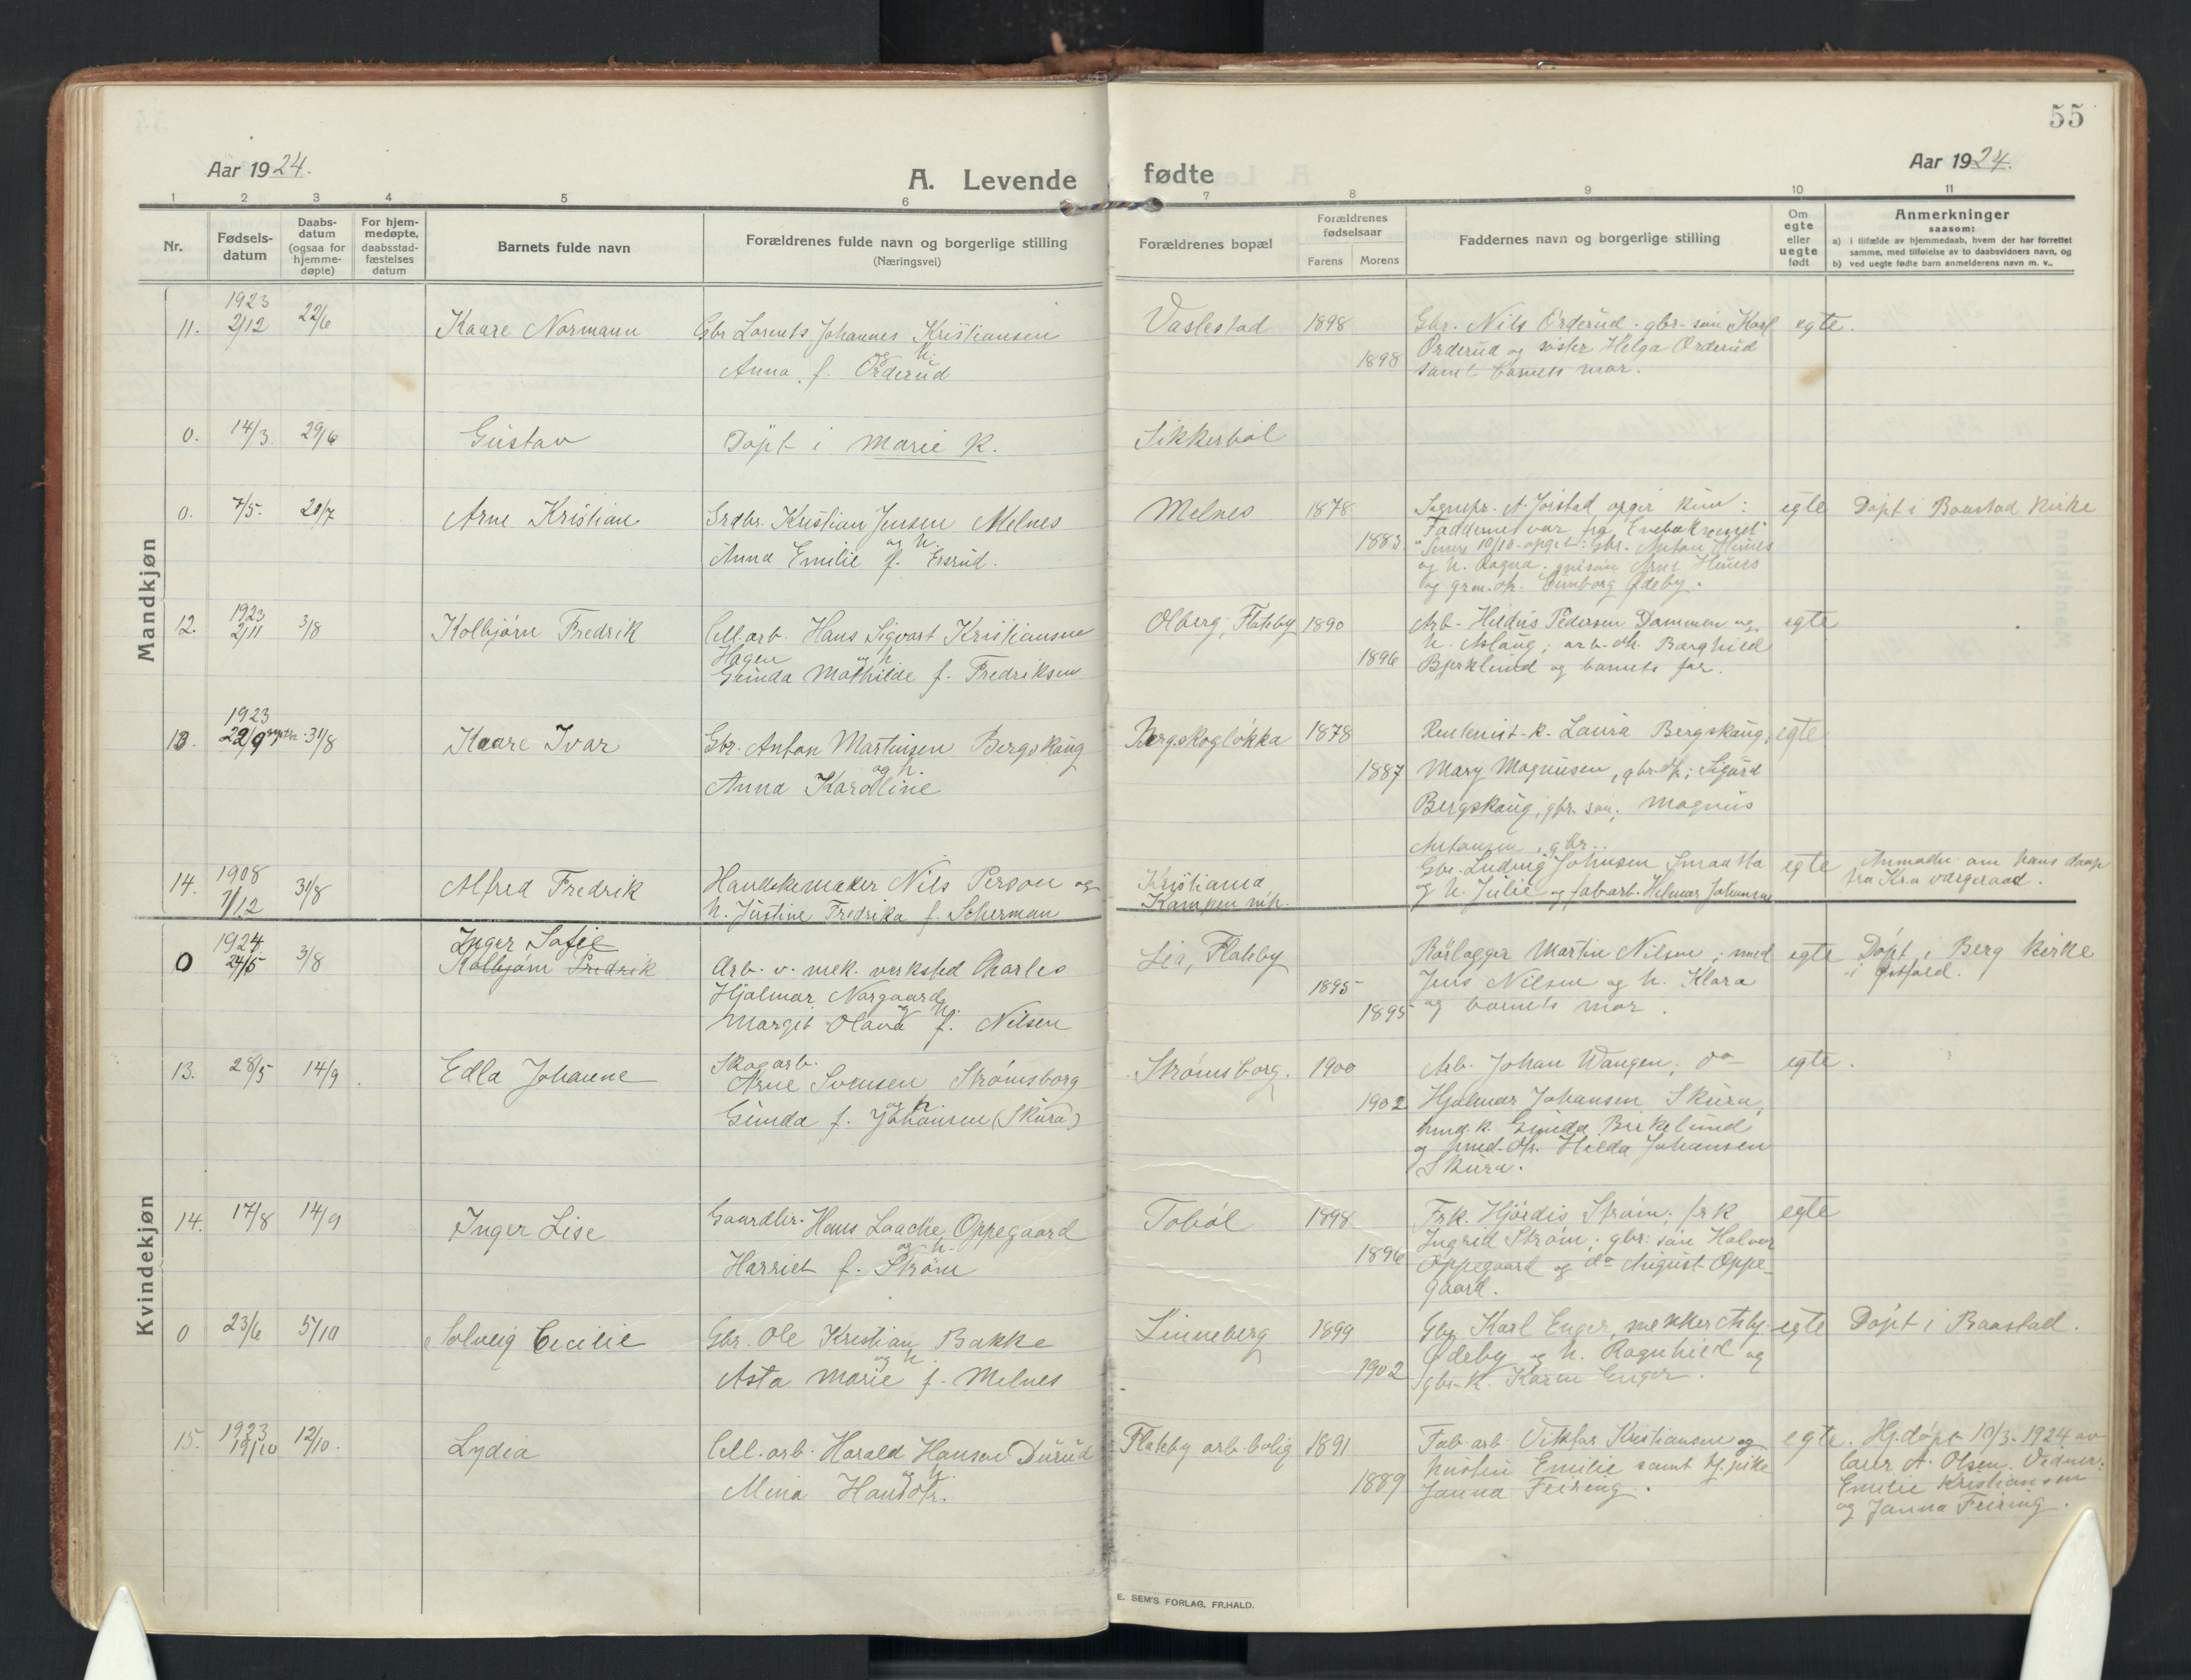 55
Aar 1924.
A. Levende fødte
Aar 1924.
1 2 3 4 5 6 7 8 9 10 11
Nr.
Fødsels-
datum
Daabs-
datum
(ogsaa for
hjemme-
døpte)
For hjem-
medøpte,
daabsstad-
fæstelses
datum
Barnets fulde navn
Forældrenes fulde navn og borgerlige stilling
(Næringsvei)
Forældrenes bopæl
Forældrenes
fødselsaar
Farens Morens
Faddernes navn og borgerlige stilling
Om
egte
eller
uegte
født
Anmerkninger
saasom:
a) i tilfælde av hjemmedaab, hvem der har forrettet
samme, med tilføielse av to daabsvidners navn, og
b) ved uegte fødte barn anmelderens navn m. v..
Mandkjøn
11. 1923 2/12 22/6 Kaare Normann
Gbr Lorents Johannes Kristiansen
og h.
Anna f. Orderud
Vaslestad 1898 1898
Gbr. Nils Orderud. gbr. søn Karl
Orderud og søster Helga Orderud
samt barnets mor.
egte.
0. 14/3 29/6 Gustav
Døpt i Marie K.
Sikkerbøl
0. 7/5. 20/7 Arne Kristian
Grdbr. Kristian Jensen Melnes
og h.
Anna Emilie f. Ersrud.
Melnes 1878 1883
Sognepr. A. Joistad opgir kun:
Fadderne var fra Enebak
Senere 10/10 opgit: Gbr. Anton
og h. Ragna.
og Ødeby.
egte
Døpt i Baastad Kirke
12. 1923 2/11 3/8 Kolbjørn Fredrik
Cell.arb. Hans Sigvart Kristiansen
Hagen og h.
Gunda Mathilde f. Fredriksen
Olberg, Flateby 1890 1896
Arb. Pedersen Dammen og
h. Aslaug; arb. dtr. Borghild
Bjerklund og barnets far.
egte
13. 1923 22/9 31/8 Kaare Ivar
Gbr. Anton Martinsen Bergskaug
og h.
Anna Karoline
Bergskogløkka 1878 1887
Rentenist-k. Laura Bergskaug,
Mary Magnusen, gbr. dtr; Sigurd
Bergskaug, gbr. søn; Magnus
Antonsen, gbr.
egte
14. 1908 7/12 31/8 Alfred Fredrik
Handskemaker Nils Person og
h. Justine Fredrika f. Scherman
Kristiania
Kampen m.h.
Gbr. Ludvig Johnsen Smaatta
og h. Julie og fab.arb. Helmar Johansen
egte
Anmodn. om hans daap
fra Kra værgeraad.
Kvindekjøn
0 1924 24/5 3/8
Inger Sofie
Kolbjørn Fredrik
Arb. v. mek. verksted Charles
Hjalmar Norgaard
og h.
Margit Olava f. Nilsen
Lia, Flateby 1895 1895
Rørlægger Martin Nilsen; smed
Jens Nilsen og h. Klara
og barnets mor.
egte
Døpt i Berg Kirke
i Østfold.
13. 28/5 14/9. Edla Johanne
Skogarb.
Arne Svensen Strømsborg
og h.
Gunda f. Johansen (Skura)
Strømsborg. 1900 1902
Arb. Johan Wangen; do
Hjalmar Johansen Skura,
smd. k. Gunda Birkelund
og smed. dtr. Hilda Johansen
Skura.
egte.
14. 17/8 14/9 Inger Lise
Gaardbr. Hans Laache Oppegaard
og h.
Harriet f. Strøm
Tobøl 1898 1896
Frk. Hjørdis Strøm; frk
Ingrid Strøm; gbr. søn Halvor
Oppegaard og do August Oppe-
gaard.
egte
0 23/6 5/10 Solveig Cecilie
Gbr. Ole Kristian Bakke
og h.
Asta Marie f. Melnes
Linneberg 1899 1902
Gbr. Karl Enger, snekker
Ødeby og h. Ragnhild og
gbr-k. Karen Enger.
egte
Døpt i Baastad.
15. 1923 19/10 12/10. Lydia
Cell. arb. Harald Hansen Durud
og h.
Mina Hansdtr.
Flateby arb.bolig 1891 1889
Fab. arb. Viktor Kristiansen og
hustru Emilie samt tj.pike
Janna Feiring.
egte.
Hj.døpt 19/3-1924 av
lærer A. Olsen. Vidner:
Emilie Kristiansen
og Janna Feiring.
E. SEM'S FORLAG, FR.HALD.